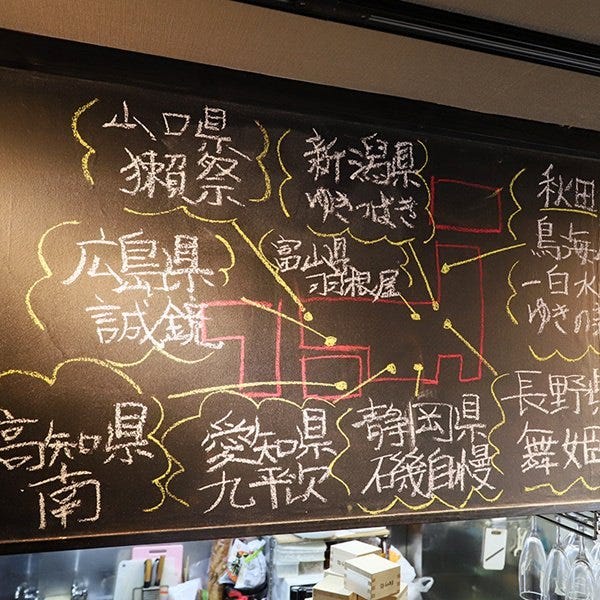 山口県
獺祭
新潟県
ゆきつばき
秋田
鳥海
一白水
ゆきの
富山県
羽根屋
広島県
誠鏡
高知県
南
愛知県
九平次
静岡県
磯自慢
長野県
舞姫